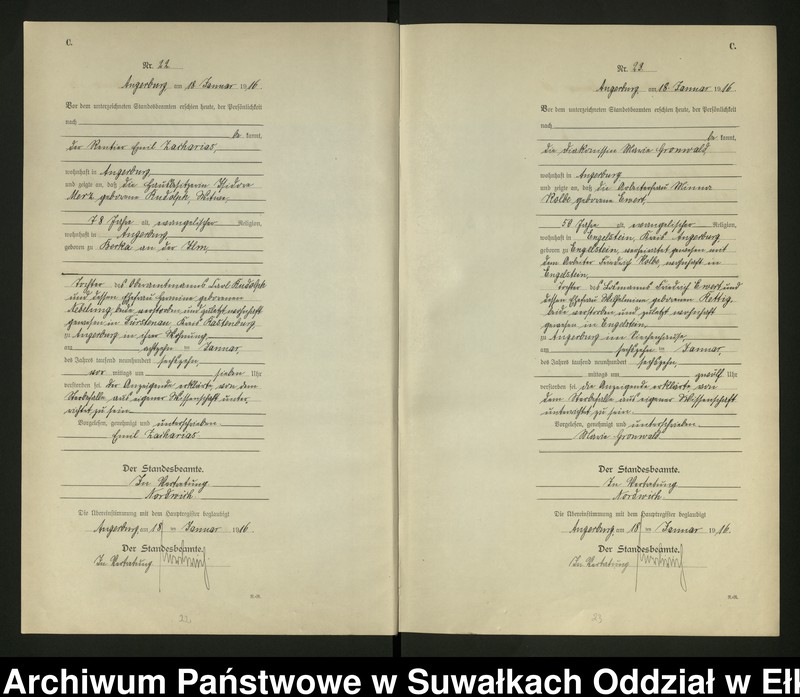 C.
Nr. 22
Angerburg am 18 Januar 1916
Vor dem unterzeichneten Standesbeamten erschien heute, der Persönlichkeit
nach
be kannt,
der Rentier Emil Zacharias,
wohnhaft in Angerburg
und zeigte an, daß die Hausbesitzerin Isidora
Merz geborene Rudolph, Witwe,
78 Jahre alt, evangelischer Religion,
wohnhaft in Angerburg
geboren zu Berka an der Ilm,
Tochter des Oberamtmanns Carl Rudolph
und dessen Ehefrau Hermine geborenen
beide verstorben und zuletzt wohnhaft
gewesen in Fürstenau, Kreis Rastenburg,
zu Angerburg in ihrer Wohnung
am achtzehn ten Januar,
des Jahres tausend neunhundert sechszehn,
vor mittags um sieben Uhr
verstorben sei. Der Anzeigende erklärte, von dem
Sterbefalle aus eigener Wissenschaft unter,
richtet zu sein.
Vorgelesen, genehmigt und unterschrieben
Emil Zacharias
Der Standesbeamte.
In Vertretung
Nordwich
Die Übereinstimmung mit dem Hauptregister beglaubigt
Angerburg, am 18 ten Januar 1916
Der Standesbeamte.
In Vertretung
23.
C.
Nr. 23
Angerburg am 18 Januar 1916.
Vor dem unterzeichneten Standesbeamten erschien heute, der Persönlichkeit
nach
be kannt,
die Diakonissin Marie Gronwald,
wohnhaft in Angerburg
und zeigte an, daß die Arbeiterfrau Minna
Kolbe geborene Ewert,
50 Jahre a, evangelischer Religion,
wohnhaft in Engelstein, Kreis Angerburg
geboren zu Engelstein, verheiratet gewesen mit
dem Arbeiter Friedrich Kolbe, wohnhaft in
Engelstein,
Tochter des Losmanns Friedrich Ewert und
dessen Ehefrau Wilhelmine geborenen Rettig,
beide verstorben und zuletzt wohnhaft
gewesen in Engelstein,
zu Angerburg im Siechenhause,
am sechszehn ten Januar,
des Jahres tausend neunhundert sechszehn,
mittags um zwölf Uhr
verstorben sei. Die Anzeigende erklärte von
dem Sterbefalle aus eigener Wissenschaft
unterrichtet zu sein.
Vorgelesen, genehmigt und unterschrieben
Marie Gronwald
Der Standesbeamte.
In Vertretung
Nordwich
Die Übereinstimmung mit dem Hauptregister beglaubigt
Angerburg, am 18 ten Januar 1916.
Der Standesbeamte.
In Vertretung
23
Archiwum Państwowe w Suwałkach Oddział w Eł